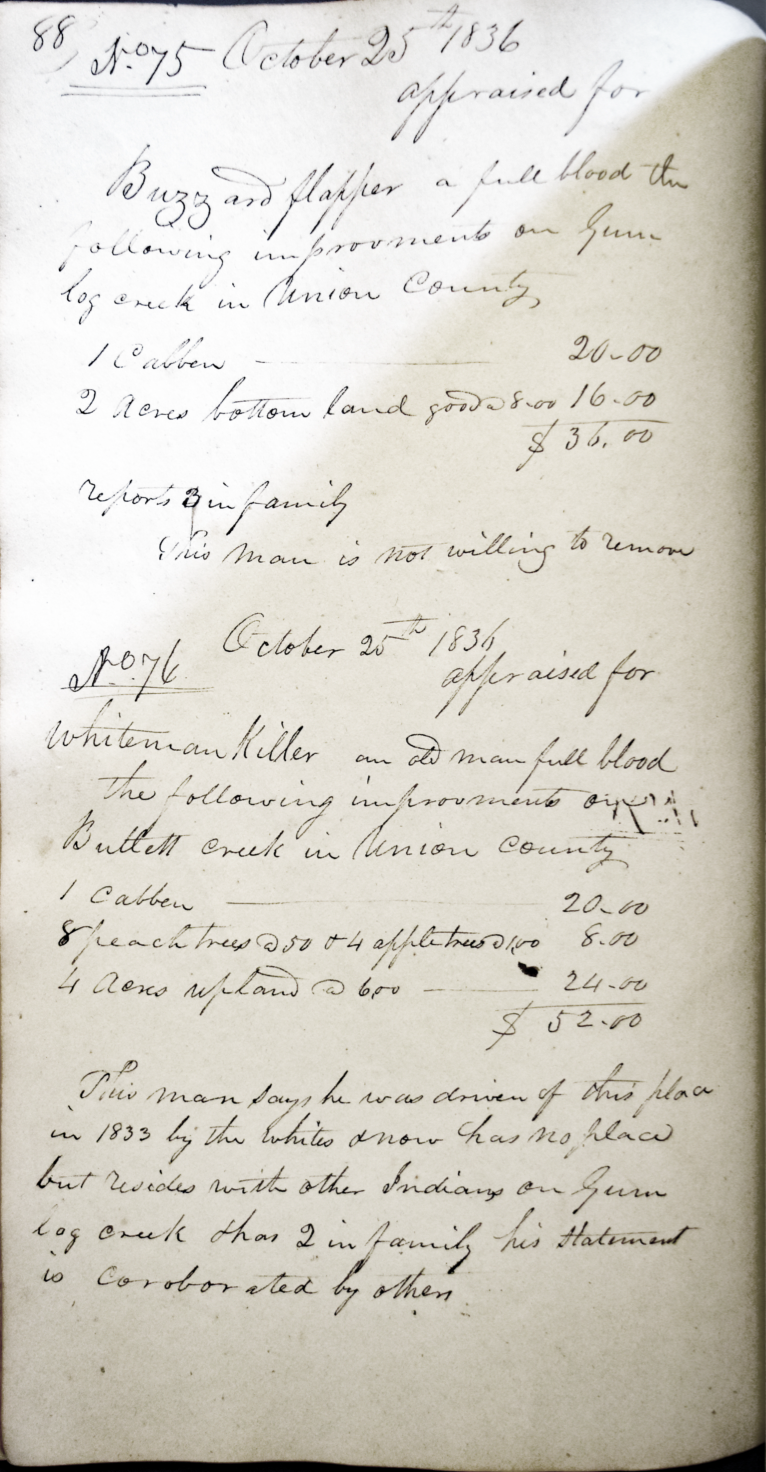 88
No. 75 October 25th 1836
appraised for
Buzzard flapper a full blood the
following improvments on Gum
log creek in Union County
1 Cabben 20-00
2 Acres bottom land good @ 8-00 16-00
$ 36.00
reports 3 in family
This man is not willing to remove
October 25th 1836
No. 76
appraised for
Whiteman Killer an old man full blood
the following improvments on
Butlett creek in Union County
1 Cabben 20-00
8 peach trees @ 50 & 4 apple trees @ 1,00 8-00
4 Acres upland @ 600 24-00
$ 52-00
This man says he was driven of this place
in 1833 by the whites & now has no place
but resides with other Indians on Gum
log creek & has 2 in family his statement
is coroborated by others